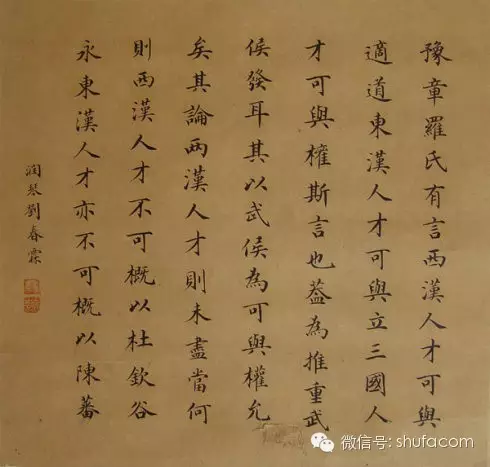 豫章羅氏有言西漢人才可與
適道東漢人才可與立三國人
才可與權斯言也蓋為推重武
侯發耳其以武侯為可與權允
矣其論兩漢人才則未盡當何
則西漢人才不可概以杜欽谷
永東漢人才亦不可概以陳蕃
潤琴劉春霖
微信号: shufacom